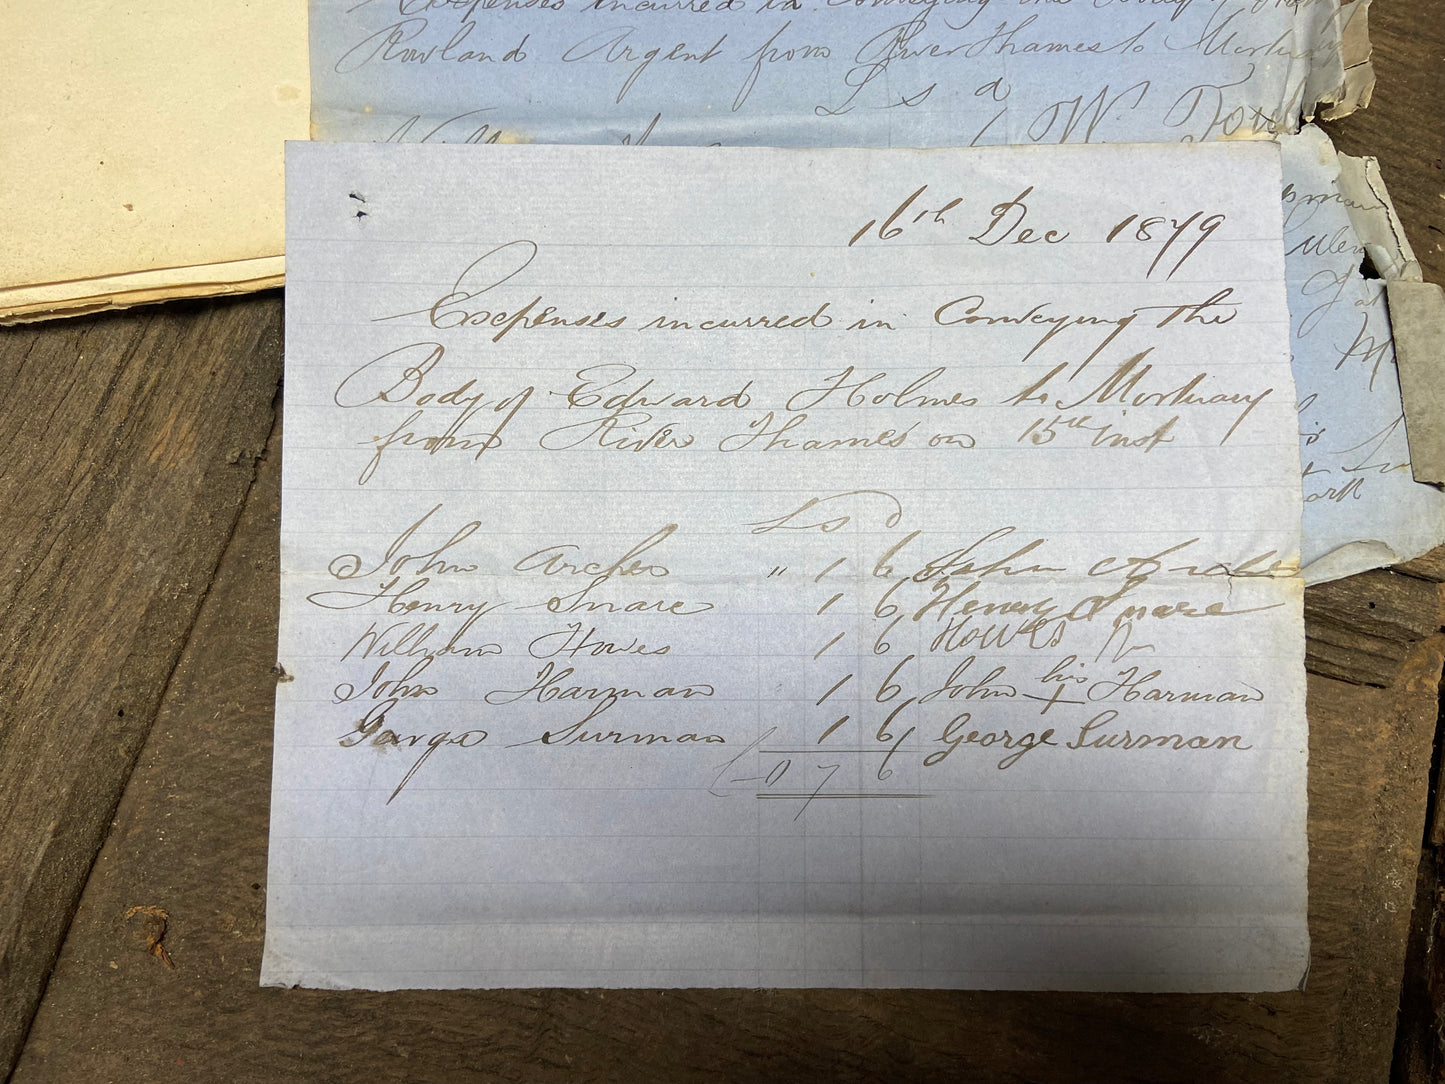 Expenses incurred in Conveying the Body of
Rowland Argent from River Thames to Mortuary
L s d
W.
16th Dec 1879
Expenses incurred in Conveying the
Body of Edward Holmes to Mortuary
from River Thames on 15th inst
L s D
John Archer " 1 6 John Archer
Henry Snare 1 6 Henry Snare
William Howes 1 6 Howes Wm
John Harman 1 6 John his + Harman
George Surman 1 6 George Surman
£ 0 7 6